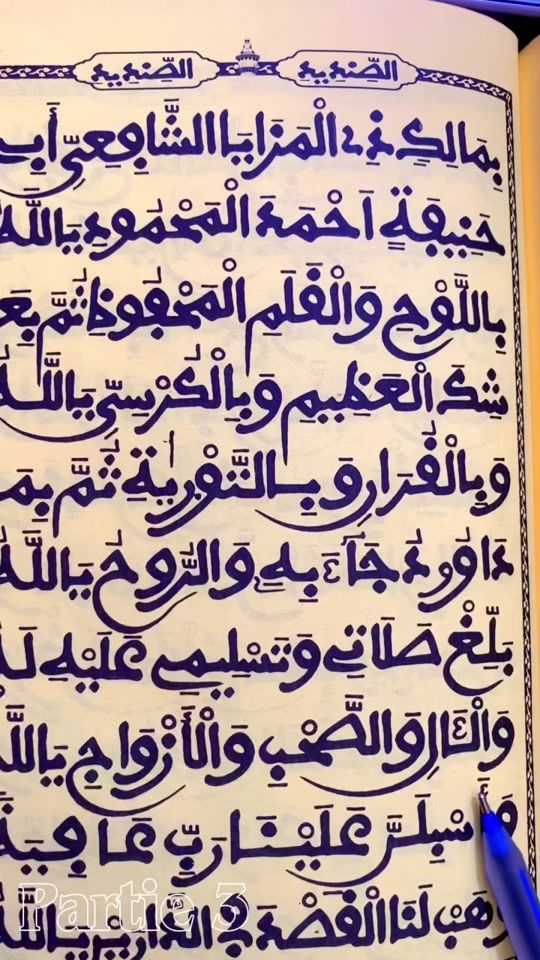 الصنديد الصنديد
بِمَالِكٍ ذِي الْمَزَايَا الشَّافِعِيِّ أَبِي
حَنِيفَةٍ اَحْمَدَ الْمَحْمُودِ يَا اللَّهُ
بِاللَّوْحِ وَالْقَلَمِ الْمَحْفُوظِ ثُمَّ بِعَ
شِكَ الْعَظِيمِ وَبِالْكُرْسِيِّ يَا اللَّهُ
وَبِالْقُرَانِ وَبِالتَّوْرِيةِ ثُمَّ بِمَ
دَاوُدُ جَاءَ بِهِ وَالرُّوحُ يَا اللَّهُ
بَلِّغْ صَلَاتِي وَتَسْلِيمِي عَلَيْهِ لَهُ
وَالْآلِ وَالصَّحْبِ وَالْأَزْوَاجِ يَا اللَّهُ
وَأَسْبِلَنَّ عَلَيْنَا رَبِّ عَافِيَةً
وَهَبْ لَنَا الْقَصْدَ فِي الدَّارَيْنِ يَا اللَّهُ
Partie 3